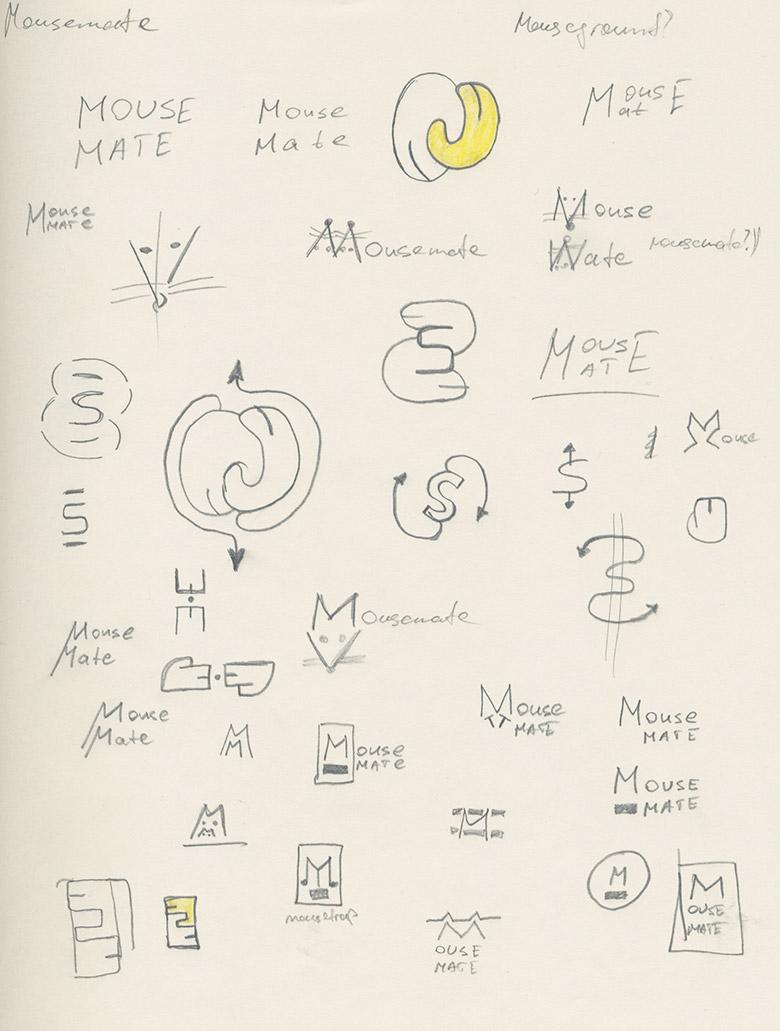 Mousemate
Mouseground?
MOUSE
MATE
Mouse
Mate
MOUSE
at
Mouse
MATE
Mousemate
Mouse
Mate
mousemate?)
S
MOUSE
AT
S
S
S
Mouse
S
S
Mouse
Mate
Mousemate
Mouse
Mate
M
M
Mouse
MATE
Mouse
MATE
Mouse
MATE
MOUSE
MATE
M
M
M
mousetrap
M
M
OUSE
MATE
M
OUSE
MATE